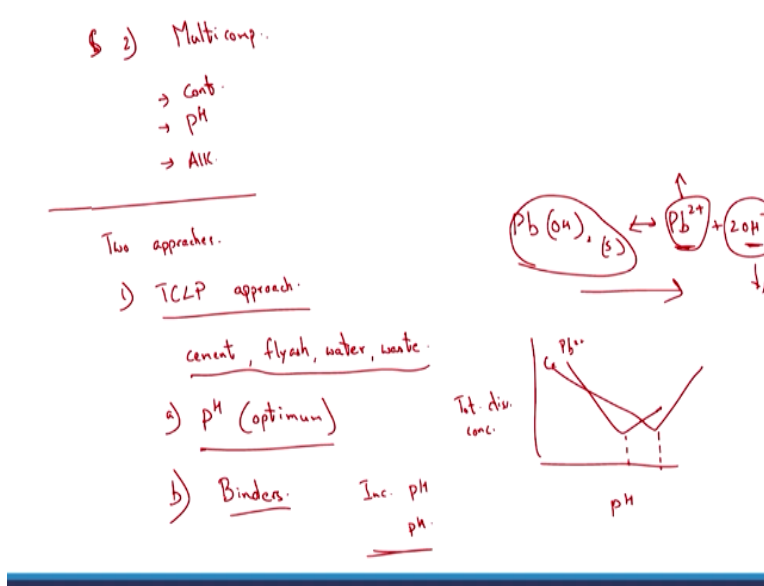 2) Multicomp.
→ Cont.
→ pH
→ Alk.
Two approaches.
1) TCLP approach.
cement, flyash, water, waste.
a) pH (optimum)
b) Binders.
Inc. pH
pH.
Pb(OH)2 (s) ↔ Pb2+ + 2OH-
Pb2+
Tot. dis.
conc.
pH